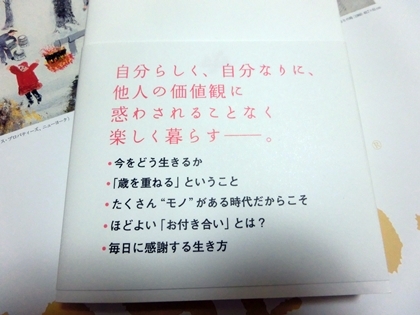 自分らしく、自分なりに、
他人の価値観に
惑わされることなく
楽しく暮らす――。
・今をどう生きるか
・「歳を重ねる」ということ
・たくさん“モノ”がある時代だからこそ
・ほどよい「お付き合い」とは？
・毎日に感謝する生き方